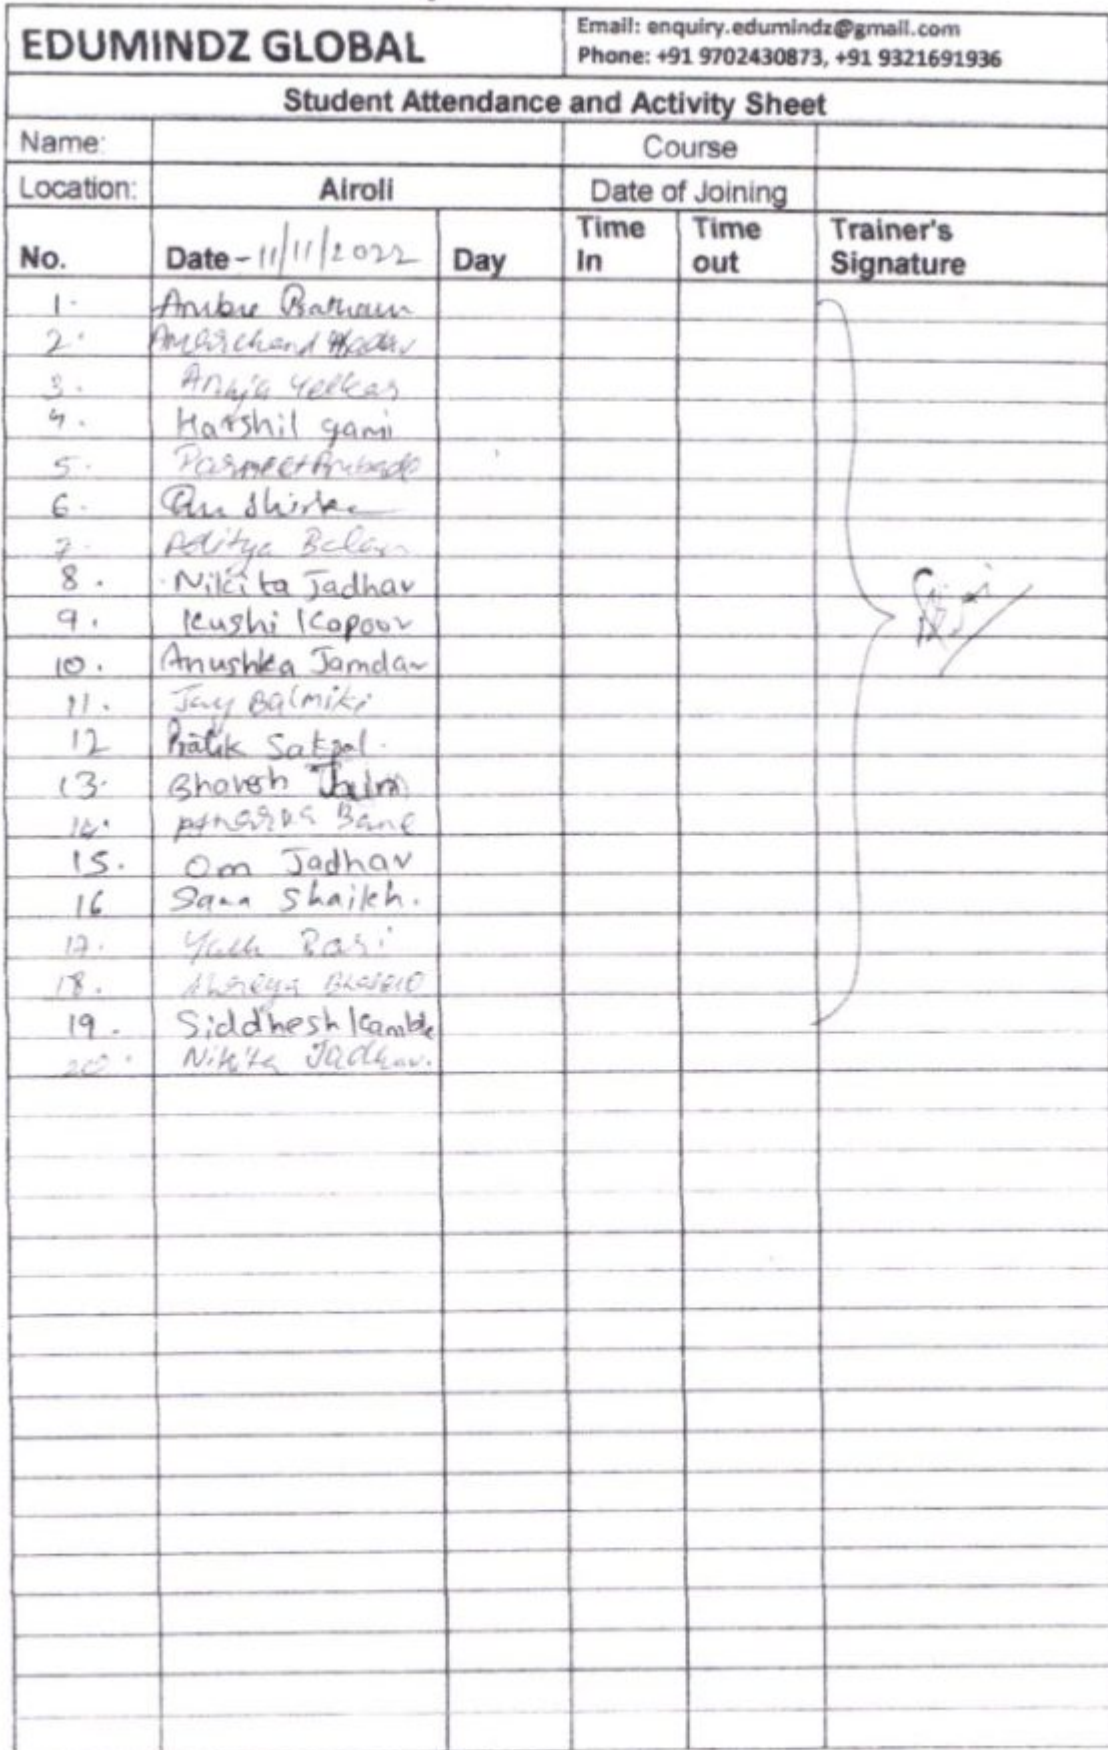 EDUMINDZ GLOBAL
Email: enquiry.edumindz@gmail.com
Phone: +91 9702430873, +91 9321691936
Student Attendance and Activity Sheet
Name: Course
Location: Airoli Date of Joining
No. Date - 11/11/2022 Day Time In Time out Trainer's Signature
1.
2. Amarchand
3. Anuja Yelkar
4. Harshil gami
5.
6.
7. Aditya
8. Nikita Jadhav
9. Kushi Kapoor
10. Anushka Jamdar
11. Jay Balmiki
12 Pratik Sakpal.
13. Bhavesh
14. Atharva Bane
15. Om Jadhav
16 Sana Shaikh.
17. Yash
18. Shreya
19. Siddhesh Kamble
20. Nikita Jadhav.